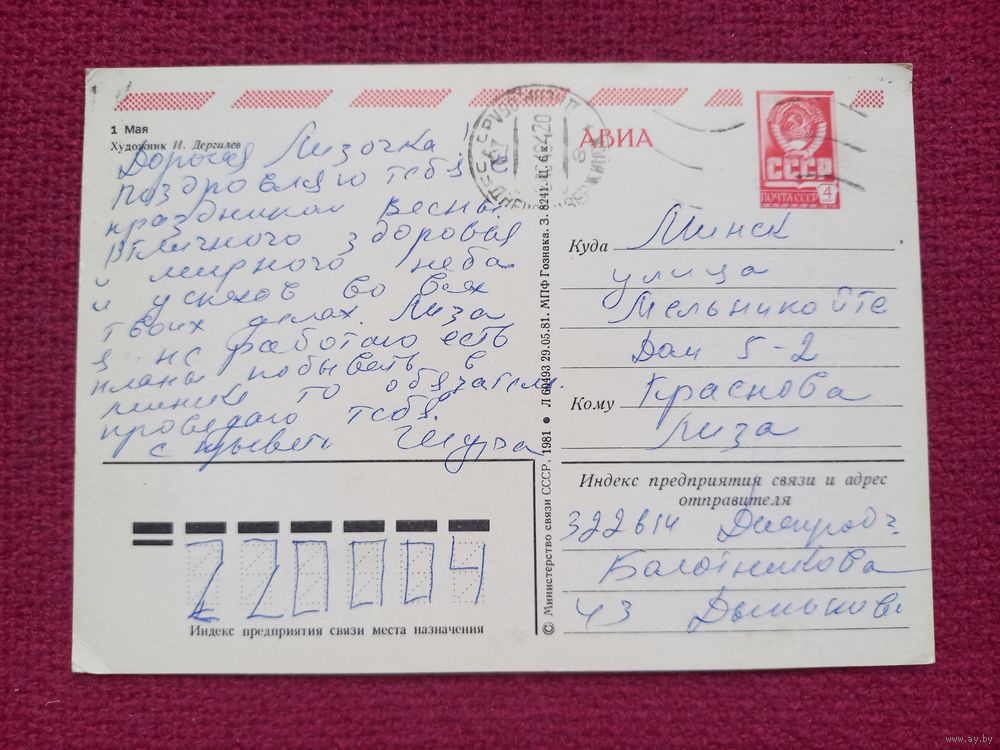 1 Мая
Художник И. Дергилев
Дорогая Лизочка!
Поздровляю тебя
праздником весны
отличного здоровья
и мирного неба
и успехов во всех
твоих делах. Лиза
я не работаю есть
планы побывать в
минске то обязател.
проведаю тебя.
с Шура
Индекс предприятия связи места назначения
220004
© Министерство связи СССР. 1981 ● Л 60493 29.05.81. МПФ Гознака. З. 8241. Ц. 6 к.
АВИА
СССР
ПОЧТА СССР
4
Куда Минск
улица
Мельникойте
Дом 5-2
Кому Краснова
Лиза
Индекс предприятия связи и адрес
отправителя
322614
Болотникова
43
www.ay.by